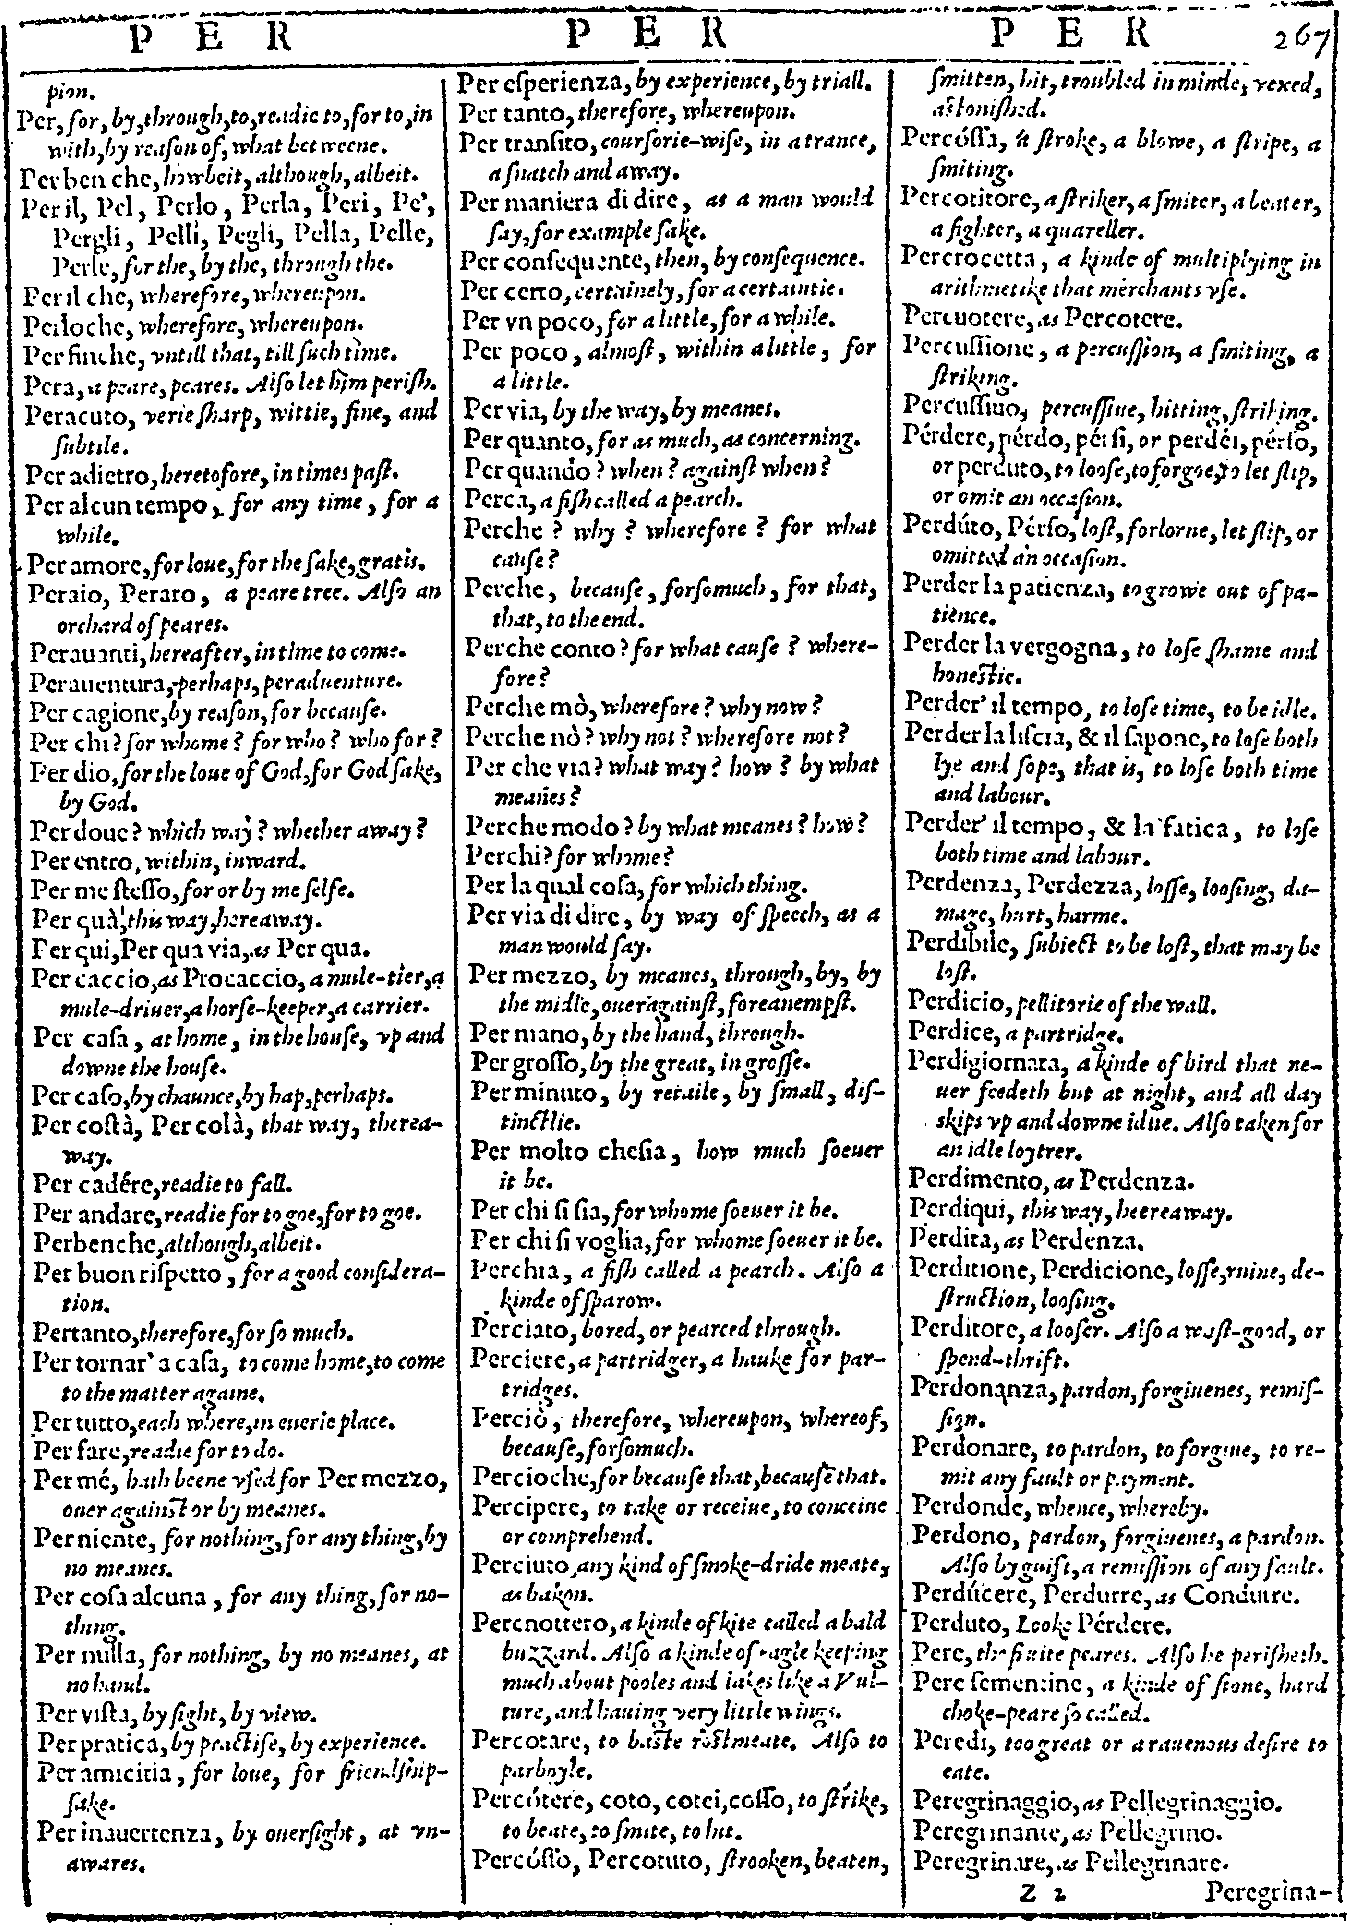 P E R P E R P E R 267
pion.
Per, for, by, through, to, readie to, for to, in
with, by reason of, what betweene.
Per ben che, howbeit, although, albeit.
Per il, Pel, Perlo, Perla, Peri, Pe',
Pergli, Pelli, Pegli, Pella, Pelle,
Perle, for the, by the, through the.
Per il che, wherefore, whereupon.
Perloche, wherefore, whereupon.
Per finche, vntill that, till such time.
Pera, a peare, peares. Also let him perish.
Peracuto, verie sharp, wittie, fine, and
subtile.
Per adietro, heretofore, in times past.
Per alcun tempo, for any time, for a
while.
Per amore, for loue, for the sake, gratis.
Peraio, Peraro, a peare tree. Also an
orchard of peares.
Perauanti, hereafter, in time to come.
Perauentura, perhaps, peraduenture.
Per cagione, by reason, for because.
Per chi? for whome? for who? who for?
Per dio, for the loue of God, for God sake,
by God.
Per doue? which way? whether away?
Per entro, within, inward.
Per me stesso, for or by me selfe.
Per quà, this way, hereaway.
Per qui, Per qua via, as Per qua.
Per caccio, as Procaccio, a mule-tier, a
mule-driuer, a horse-keeper, a carrier.
Per casa, at home, in the house, vp and
downe the house.
Per caso, by chaunce, by hap, perhaps.
Per costà, Per colà, that way, therea-
way.
Per cadére, readie to fall.
Per andare, readie for to goe, for to goe.
Perbenche, although, albeit.
Per buon rispetto, for a good considera-
tion.
Pertanto, therefore, for so much.
Per tornar' a casa, to come home, to come
to the matter againe.
Per tutto, each where, in euerie place.
Per fare, readie for to do.
Per mé, hath beene vsed for Per mezzo,
ouer against or by meanes.
Per niente, for nothing, for any thing, by
no meanes.
Per cosa alcuna, for any thing, for no-
thing.
Per nulla, for nothing, by no meanes, at
no hand.
Per vista, by sight, by view.
Per pratica, by practise, by experience.
Per amicitia, for loue, for friendship-
sake.
Per inauertenza, by ouersight, at vn-
awares.
Per esperienza, by experience, by triall.
Per tanto, therefore, whereupon.
Per transito, coursorie-wise, in a trance,
a snatch and away.
Per maniera di dire, as a man would
say, for example sake.
Per consequente, then, by consequence.
Per certo, certainely, for a certaintie.
Per vn poco, for a little, for a while.
Per poco, almost, within a little, for
a little.
Per via, by the way, by meanes.
Per quanto, for as much, as concerning.
Per quando? when? against when?
Perca, a fish called a pearch.
Perche? why? wherefore? for what
cause?
Perche, because, forsomuch, for that,
that, to the end.
Perche conto? for what cause? where-
fore?
Perche mò, wherefore? why now?
Perche nò? why not? wherefore not?
Per che via? what way? how? by what
meanes?
Perche modo? by what meanes? how?
Perchi? for whome?
Per la qual cosa, for which thing.
Per via di dire, by way of speech, as a
man would say.
Per mezzo, by meanes, through, by, by
the midle, oueragainst, foreanempst.
Per mano, by the hand, through.
Per grosso, by the great, in grosse.
Per minuto, by retaile, by small, dis-
tinctlie.
Per molto chesia, how much soeuer
it be.
Per chi si sia, for whome soeuer it be.
Per chi si voglia, for whome soeuer it be.
Perchia, a fish called a pearch. Also a
kinde of sparow.
Perciato, bored, or pearced through.
Perciere, a partridger, a hauke for par-
tridges.
Perciò, therefore, whereupon, whereof,
because, forsomuch.
Percioche, for because that, because that.
Percipere, to take or receiue, to conceiue
or comprehend.
Perciuto, any kind of smoke-dride meate,
as bakon.
Percnottero, a kinde of kite called a bald
buzzard. Also a kinde of eagle keeping
much about pooles and lakes like a Vul-
ture, and hauing very little wings.
Percotare, to baste rostmeate. Also to
parboyle.
Percótere, coto, cotei, cosso, to strike,
to beate, to smite, to hit.
Percósso, Percotuto, strooken, beaten,
smitten, hit, troubled in minde, vexed,
astonished.
Percóssa, a stroke, a blowe, a stripe, a
smiting.
Percotitore, a striker, a smiter, a beater,
a fighter, a quareller.
Percrocetta, a kinde of multiplying in
arithmetike that merchants vse.
Percuotere, as Percotere.
Percussione, a percussion, a smiting, a
striking.
Percussiuo, percussiue, hitting, striking.
Pérdere, pérdo, pérsi, or perdéi, pérso,
or perduto, to loose, to forgoe, to let slip,
or omit an occasion.
Perdúto, Pérso, lost, forlorne, let slip, or
omitted an occasion.
Perder la patienza, to growe out of pa-
tience.
Perder la vergogna, to lose shame and
honestie.
Perder' il tempo, to lose time, to be idle.
Perder la liscia, & il sapone, to lose both
lye and sope, that is, to lose both time
and labour.
Perder' il tempo, & la fatica, to lose
both time and labour.
Perdenza, Perdezza, losse, loosing, da-
mage, hurt, harme.
Perdibile, subiect to be lost, that may be
lost.
Perdicio, pellitorie of the wall.
Perdice, a partridge.
Perdigiornata, a kinde of bird that ne-
uer feedeth but at night, and all day
skips vp and downe idlie. Also taken for
an idle loytrer.
Perdimento, as Perdenza.
Perdiqui, this way, heereaway.
Perdita, as Perdenza.
Perditione, Perdicione, losse, ruine, de-
struction, loosing.
Perditore, a looser. Also a wast-good, or
spend-thrift.
Perdonanza, pardon, forgiuenes, remis-
sion.
Perdonare, to pardon, to forgiue, to re-
mit any fault or payment.
Perdonde, whence, whereby.
Perdono, pardon, forgiuenes, a pardon.
Also by guift, a remission of any fault.
Perdúcere, Perdurre, as Condurre.
Perduto, Looke Pérdere.
Pere, the fruite peares. Also he perisheth.
Pere sementine, a kinde of stone, hard
choke-peare so called.
Peredi, too great or a rauenous desire to
eate.
Peregrinaggio, as Pellegrinaggio.
Peregrinante, as Pellegrino.
Peregrinare, as Pellegrinare.
Z 2 Peregrina-